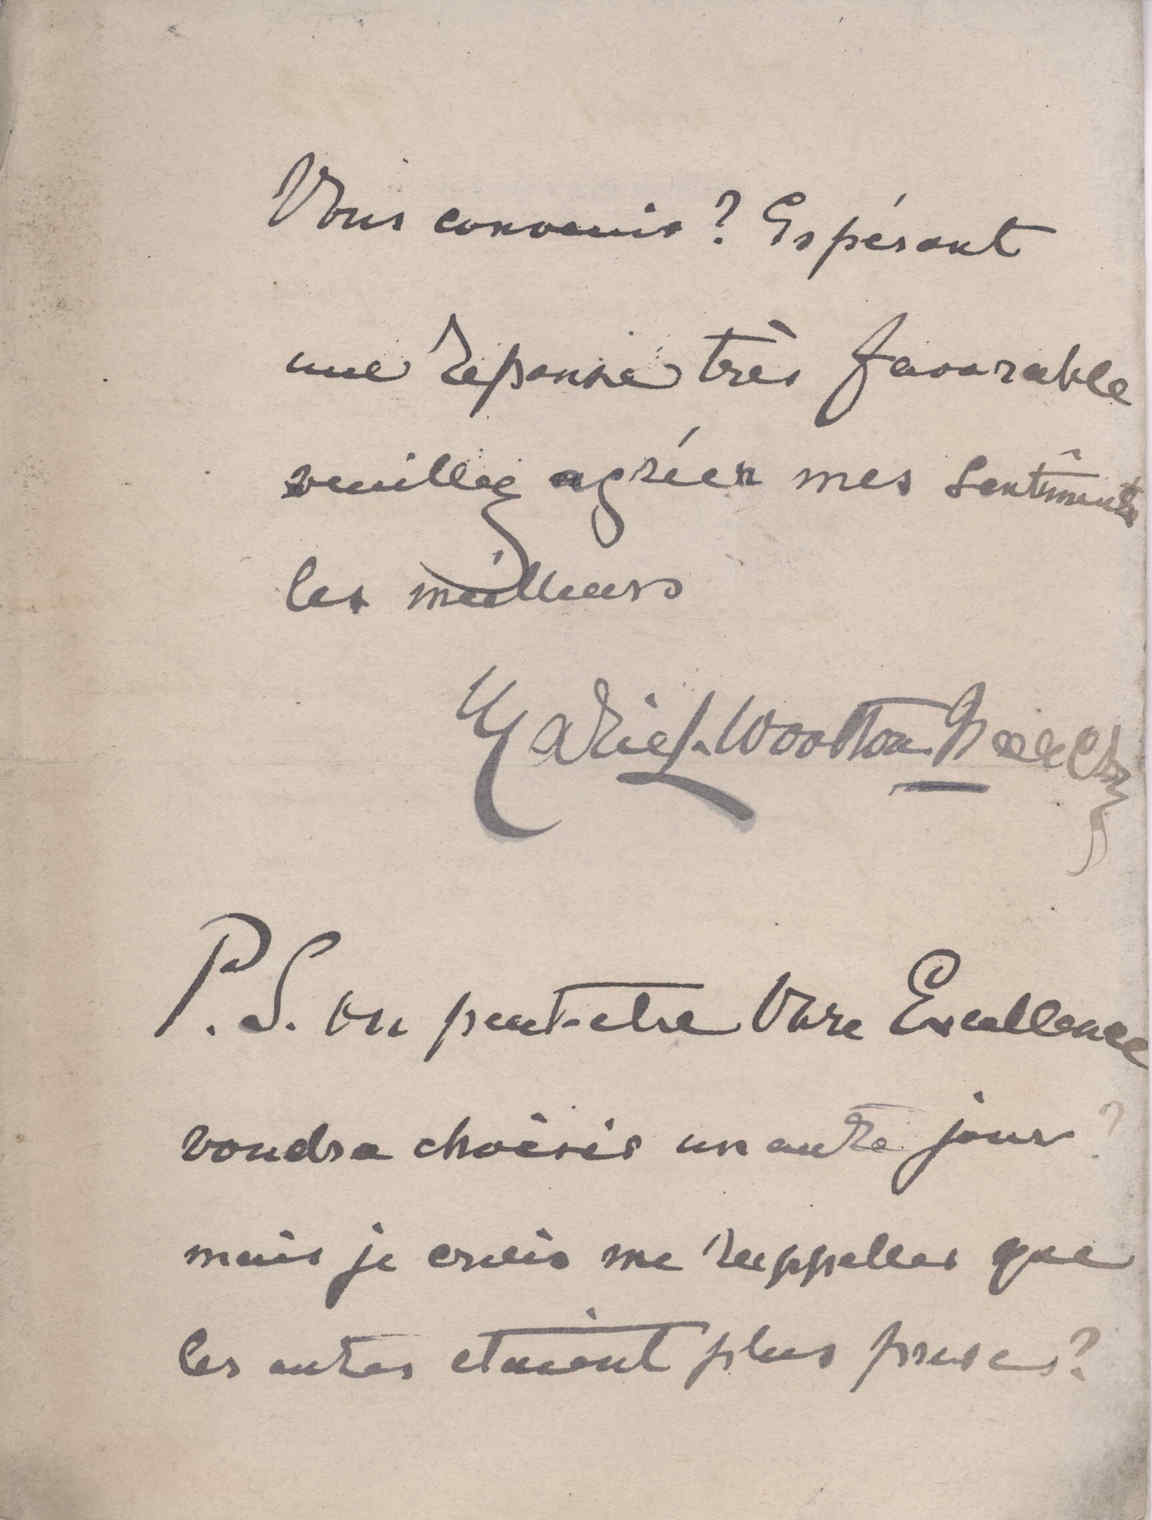 Vous convenir? Espérant
une réponse très favorable
veuillez agréer mes sentiments
les meilleurs
Wootton
P.S. ou peut-etre Votre Excellence
voudra choisir un autre jour?
mais je crois me rappeller que
les autres etaient plus prises?